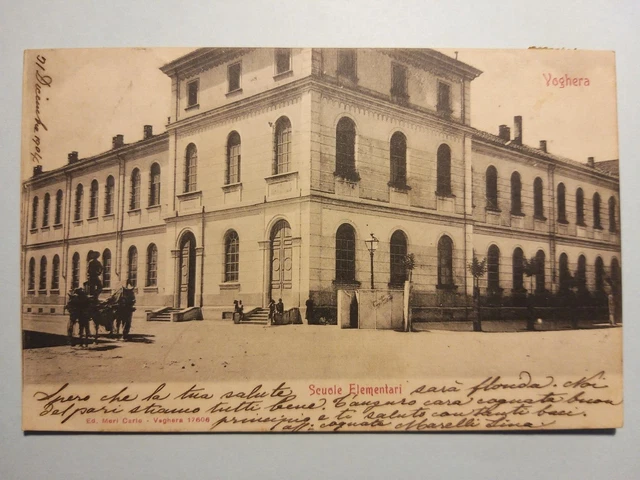 31 Dicembre 1904
Voghera
Scuole Elementari
Spero che la tua salute sarà florida. Noi
del pari stiamo tutti bene. T'auguro cara cognata buon
principio e ti saluto con tanti baci.
aff: cognata Marelli Lina.
Ed. Meri Carlo - Voghera 17606